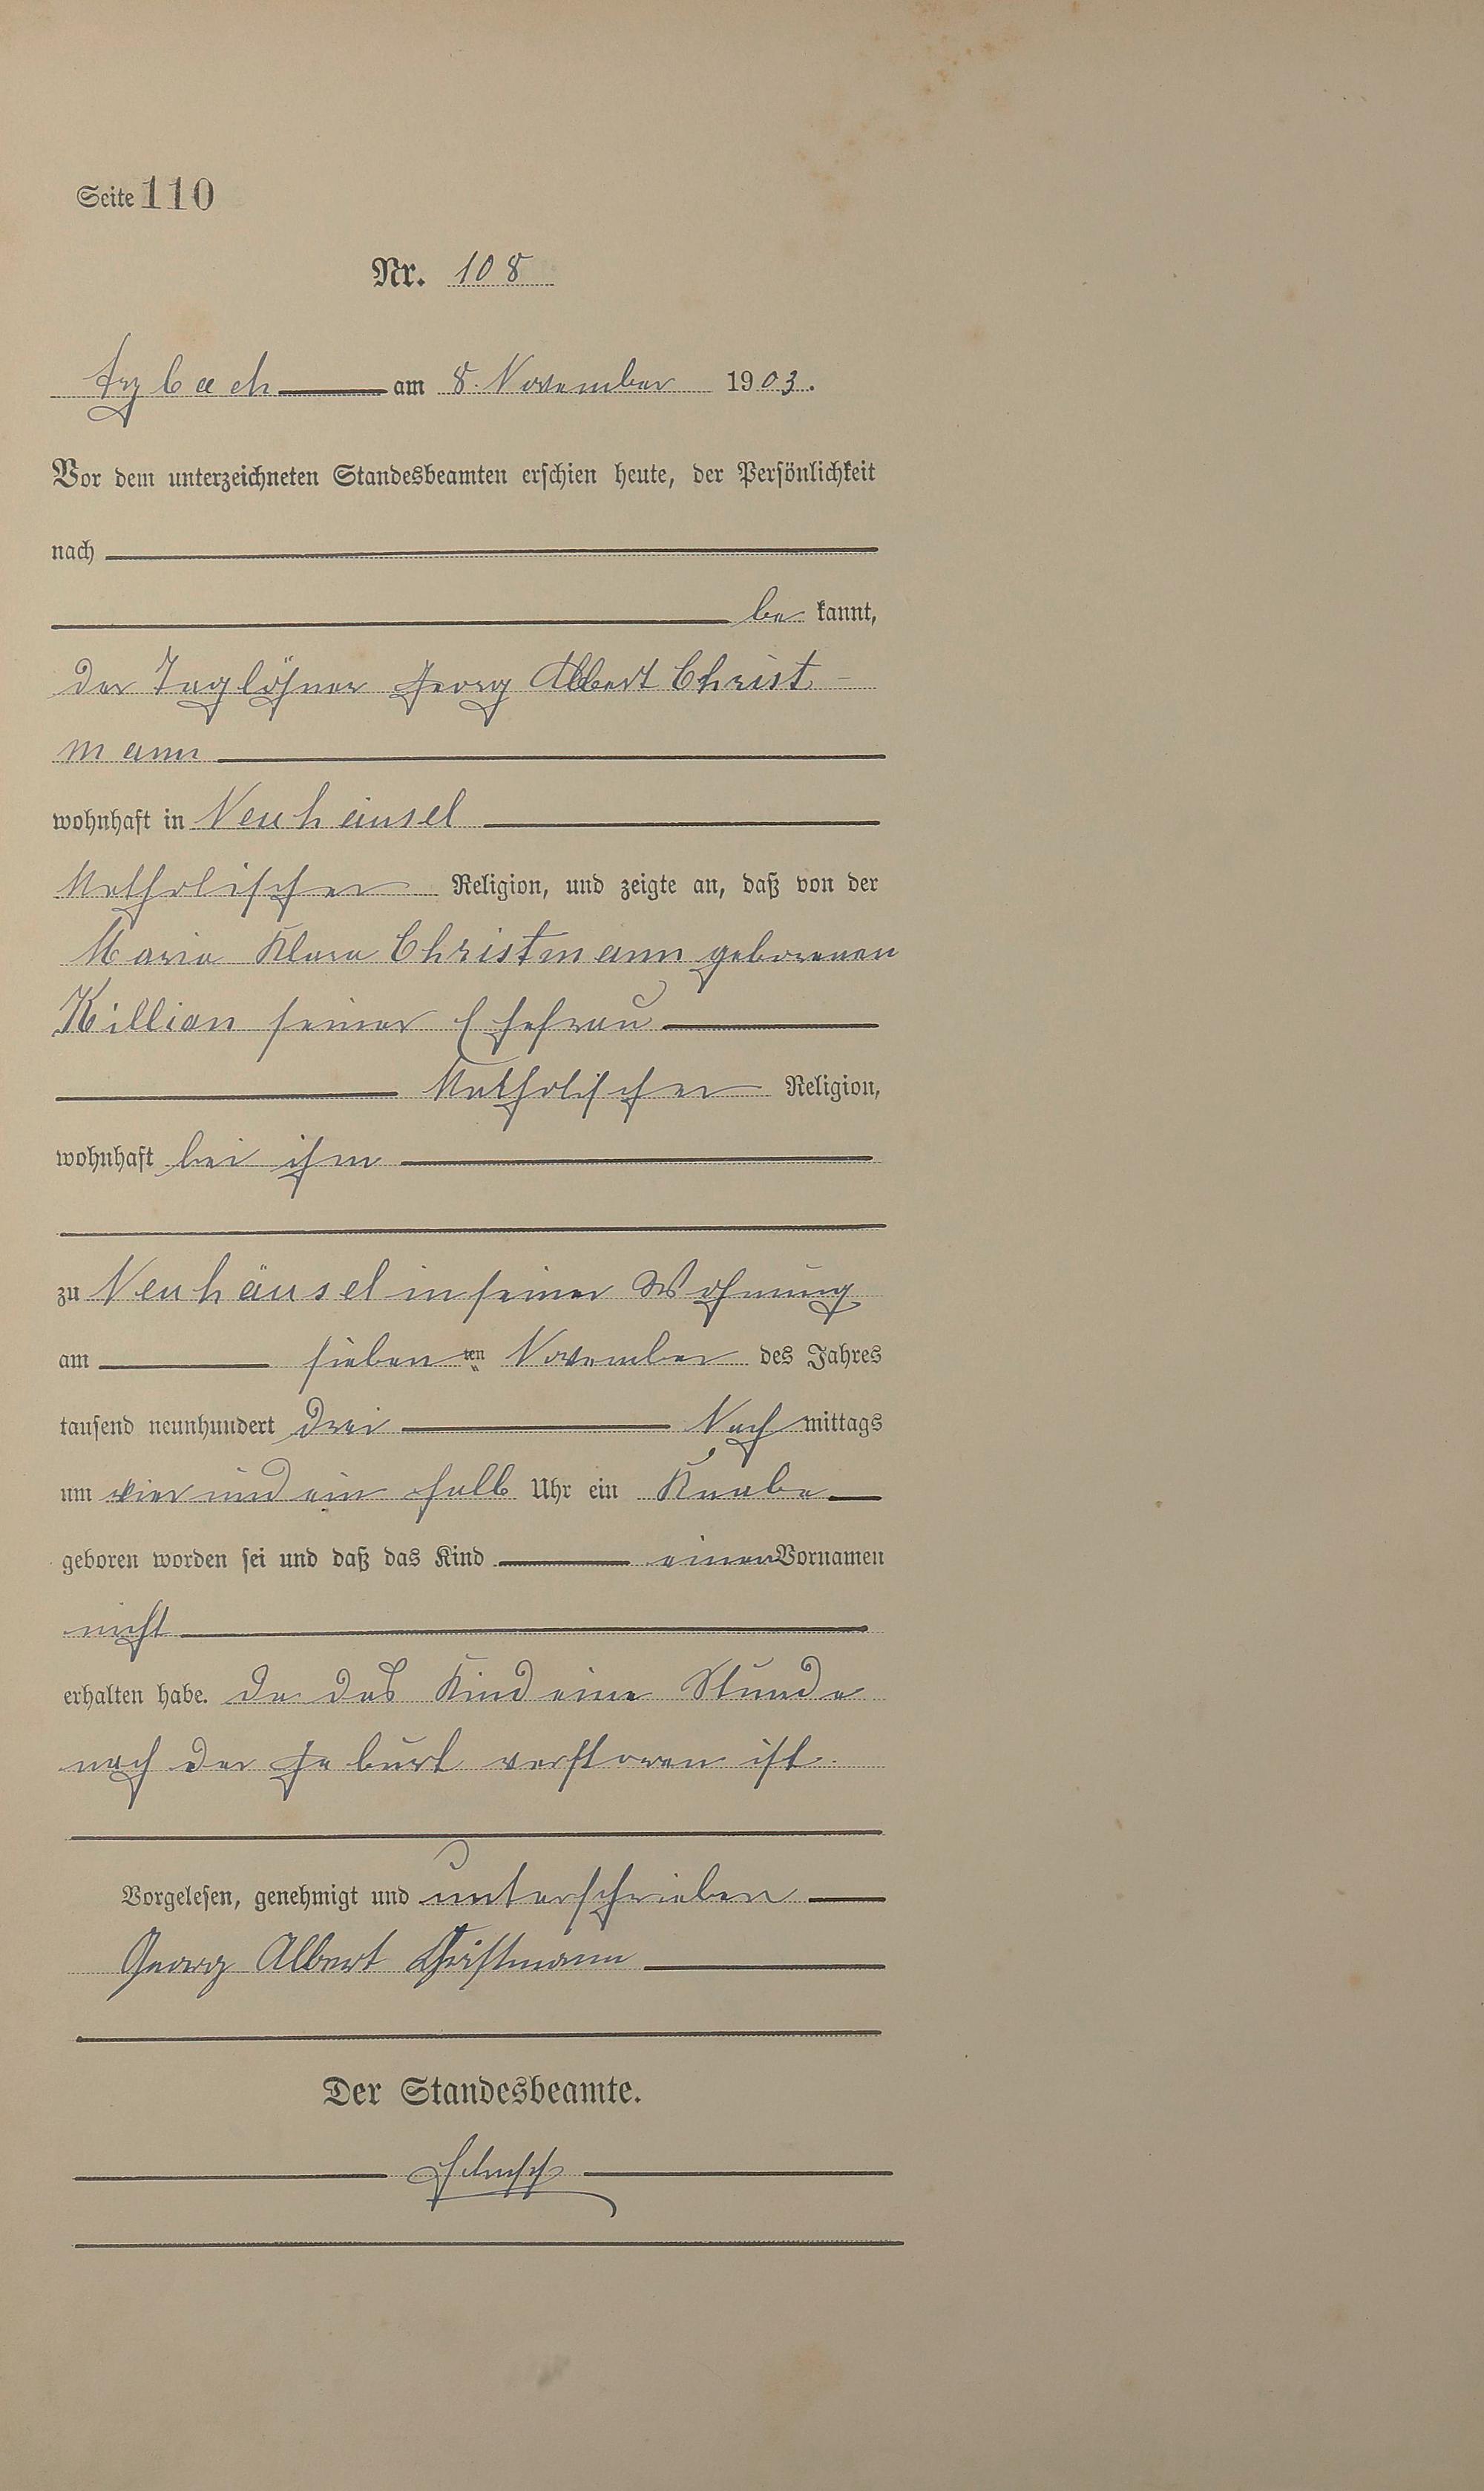 Seite 110
Nr. 108
Arzbach am 8. November 1903.
Vor dem unterzeichneten Standesbeamten erschien heute, der Persönlichkeit
nach
be kannt,
der Taglöhner Georg Albert Christ-
mann
wohnhaft in Neuhäusel
Katholischer Religion, und zeigte an, daß von der
Maria Klara Christmann geborenen
Killian seiner Ehefrau
Katholischer Religion,
wohnhaft bei ihm
zu Neuhäusel in seiner Wohnung
am sieben ten November des Jahres
tausend neunhundert drei Nach mittags
um vier und ein halb Uhr ein Knabe
geboren worden sei und daß das Kind einen Vornamen
nicht
erhalten habe. Da das Kind eine Stunde
nach der Geburt verstoren ist.
Vorgelesen, genehmigt und unterschrieben
Georg Albert Christmann
Der Standesbeamte.